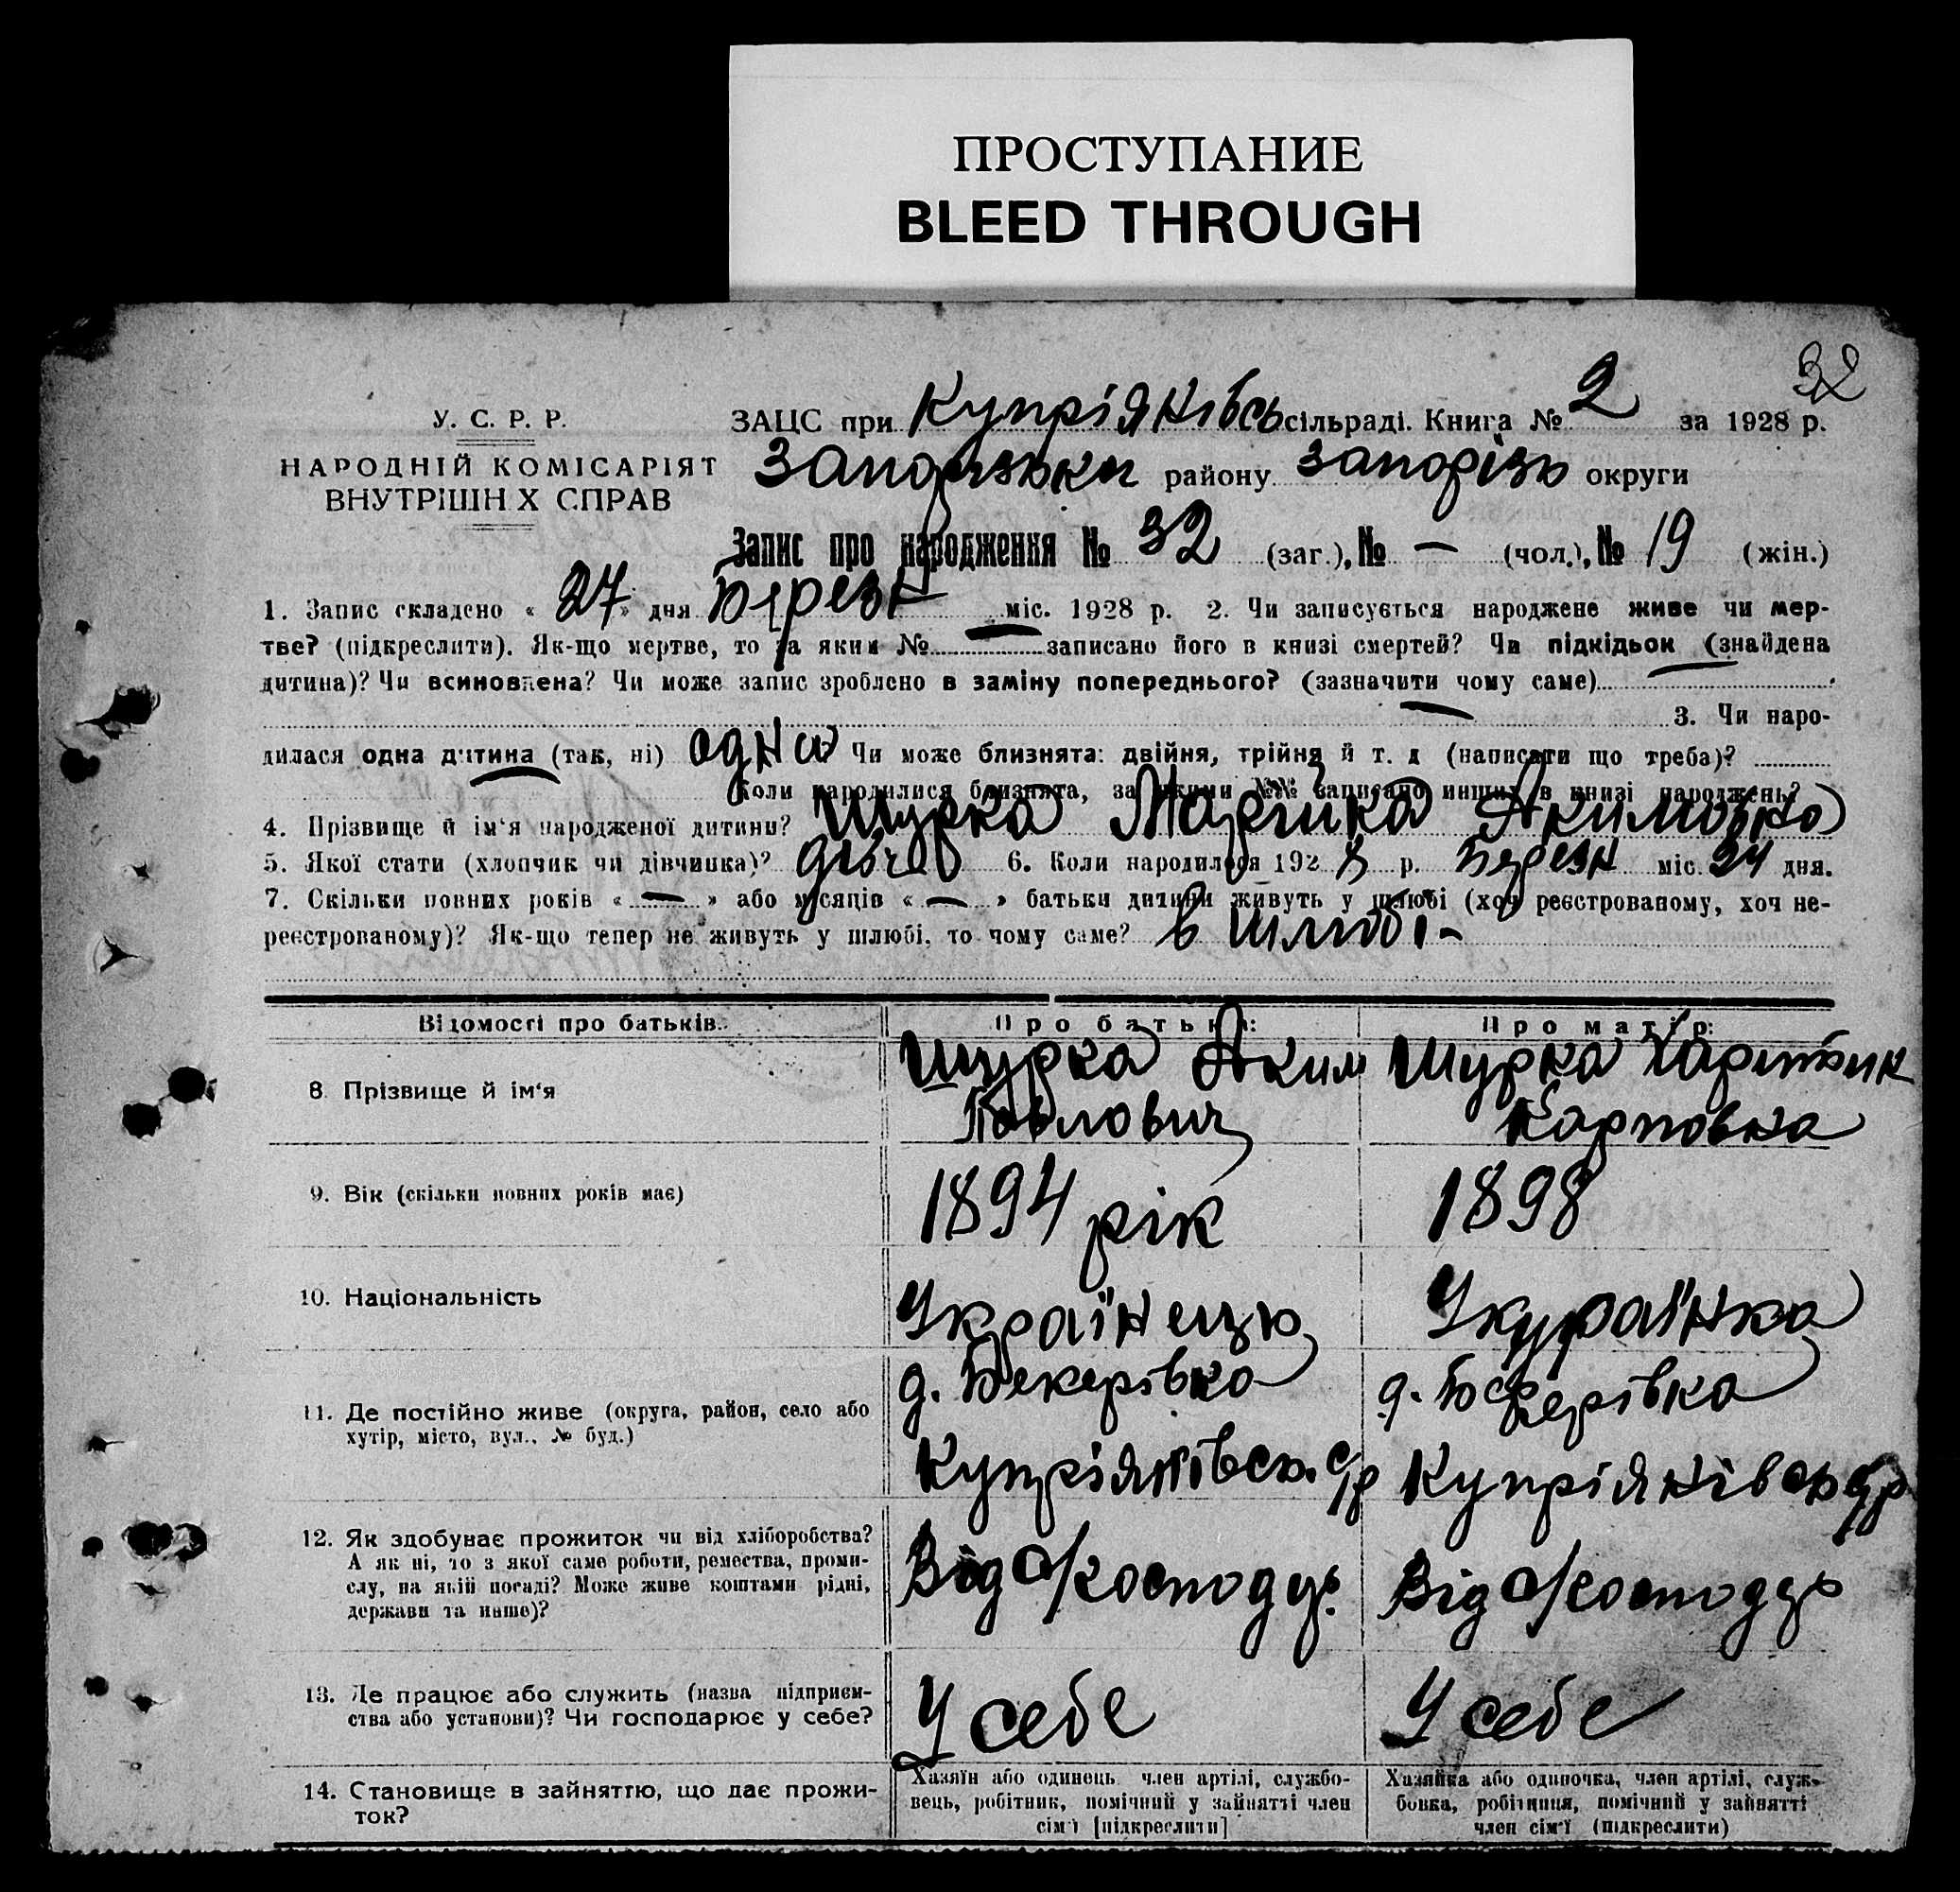 ПРОСТУПАНИЕ
BLEED THROUGH
32
У. С. Р. Р.
НАРОДНІЙ КОМІСАРІЯТ
ВНУТРІШН Х СПРАВ
ЗАЦС при Купріянівсь сільраді. Книга № 2 за 1928 р.
району Запорізь округи
Запис про народження № 32 (заг.), № — (чол.), № 19 (жін.)
1. Запис складено « 27 » дня Березн міс. 1928 р. 2. Чи записується народжене живе чи мер-
тве? (підкреслити). Як-що мертве, то за яким № — записано його в книзі смертей? Чи підкідьок (знайдена
дитина)? Чи всиновлена? Чи може запис зроблено в заміну попереднього? (зазначити чому саме)
3. Чи наро-
дилася одна дитина (так, ні) одна Чи може близнята: двійня, трійня й т. д (написати що треба)?
Коли народилися близнята, за якими №№ записано инших в книзі народжень?
4. Прізвище й ім‘я народженої дитини? Шурка Акимовна
5. Якої стати (хлопчик чи дівчинка)? дівч 6. Коли народилася 1928 р. Березн міс. 24 дня.
7. Скільки повних років « — » або місяців « — » батьки дитини живуть у шлюбі (хоч реєстрованому, хоч не-
реєстрованому)? Як-що тепер не живуть у шлюбі, то чому саме? в шлюбі -
Відомості про батьків. Про батька: Про матір:
8. Прізвище й ім‘я
Шурка Аким Павлович
Шурка Карповна
9. Вік (скільки повних років має)
1894 рік
1898
10. Національність
Українець
Украінка
11. Де постійно живе (округа, район, село або
хутір, місто, вул., № буд.)
д. Бекерівка
Купріянівсь. с/р
д. Бекерівка
Купріянівсь с/р
12. Як здобуває прожиток чи від хліборобства?
А як ні, то з якої саме роботи, ремества, проми-
слу, на якій посаді? Може живе коштами рідні,
держави та инше)?
Від с/господ.
Від с/господ
13. Де працює або служить (назва підприєм-
ства або установи)? Чи господарює у себе?
У себе
У себе
14. Становище в зайняттю, що дає прожи-
ток?
Хазяїн або одинець, член артілі, службо-
вець, робітник, помічний у зайнятті член
сім‘ї [підкреслити]
Хазяйка або одиночка, член артілі, служ-
бовка, робітниця, помічний у зайнятті
член сім‘ї (підкреслити)